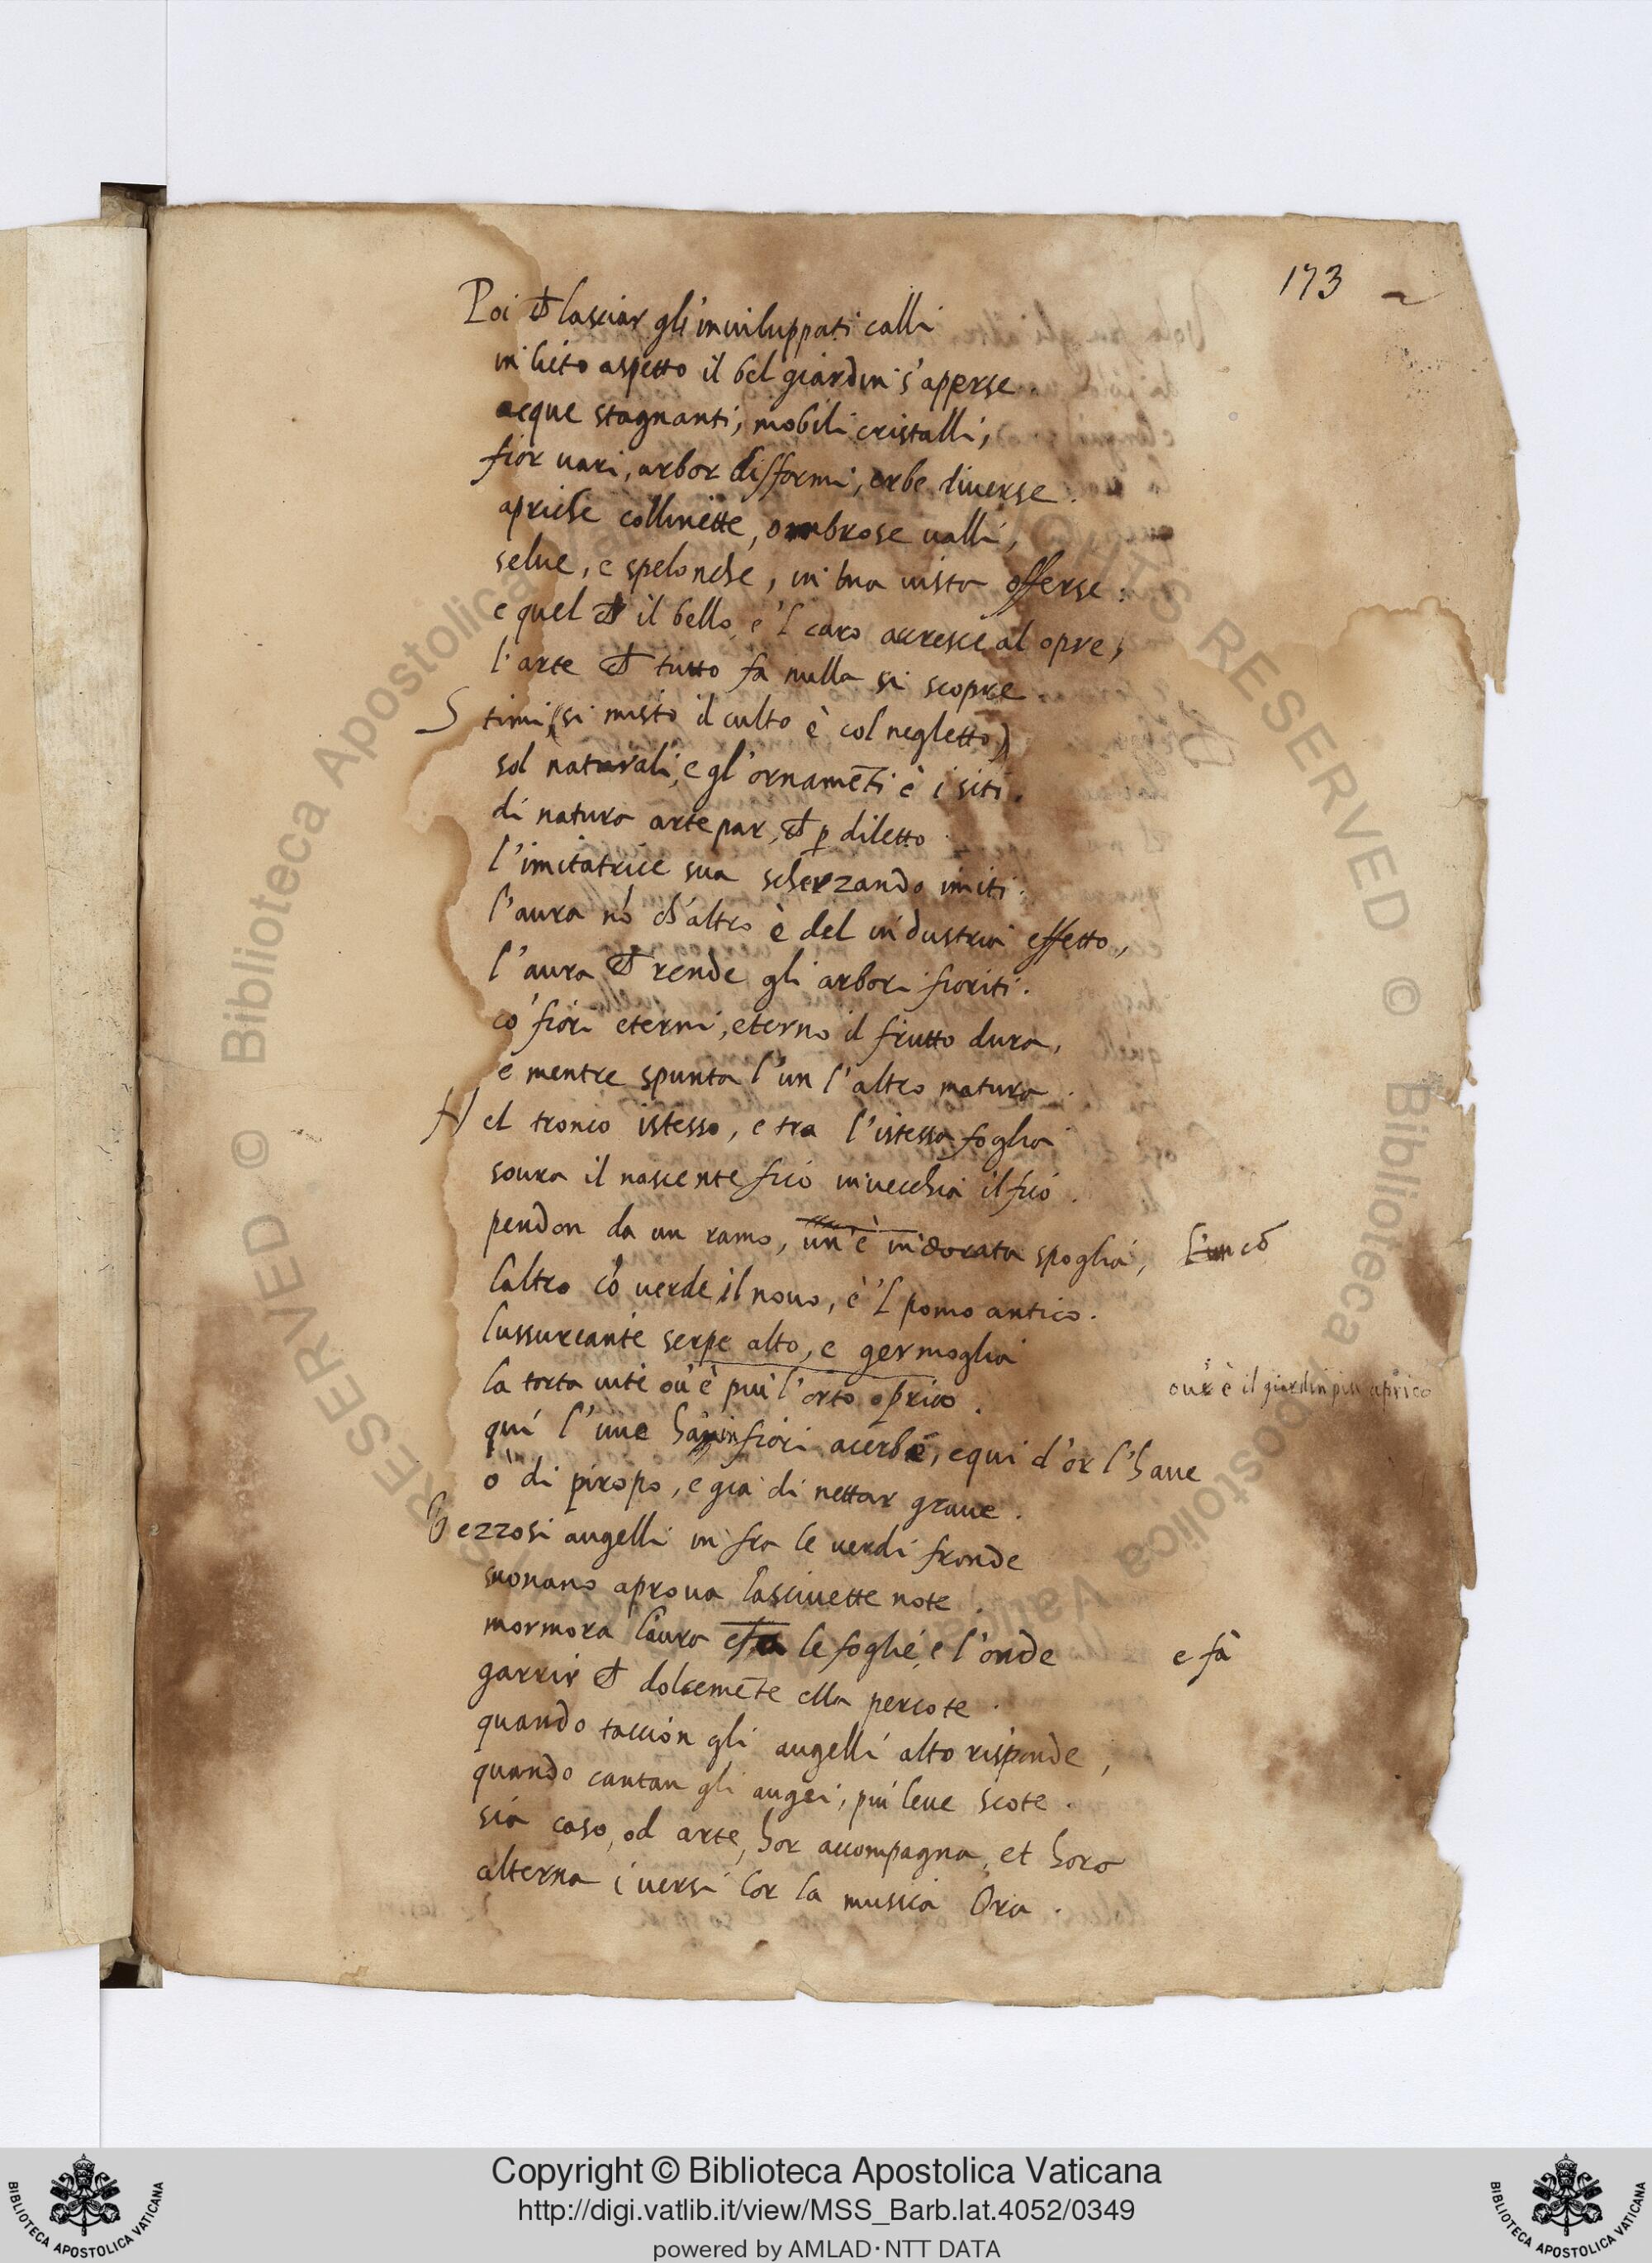 173
Poi ch lasciar gli inuiluppati calli
in lieto aspetto il bel giardin s'aperse.
acque stagnanti, mobili cristalli,
fior uari, arbor difformi, erbe diuerse.
apriche collinette, ombrose ualli,
selue, e spelonche, in una uista offerse:
e quel ch il bello, e 'l caro accresce al opre,
l'arte ch tutto fa nulla si scopre.
Stimi, (si misto il culto è col negletto)
sol naturali, e gl'ornamēti è i siti.
di natura arte par, ch p diletto
l'imitatrice sua scherzando imiti.
l'aura nō ch'altro è del industria effetto,
l'aura ch rende gli arbori fioriti.
cō fiori eterni, eterno il frutto dura,
e mentre spunta l'un l'altro matura.
Nel tronco istesso, e tra l'istessa foglia
soura il nascente fico inuecchia il fico.
pendon da un ramo, un è in dorata spoglia, L'un cō
laltro cō uerde il nouo, è 'l pomo antico.
lussureante serpe alto, e germoglia
la torta uite ou'è piu l'orto aprico. ou'è il giardin piu aprico
qui l'uue ha in fiori acerbe, e qui d'or l'haue
o di piropo, e gia di nettar graue.
Vezzosi augelli in fra le uerdi fronde
suonano aproua lasciuette note.
mormora l'aura e fa le foglie, e l'onde e fà
garrir ch dolcemēte ella percote.
quando taccion gli augelli alto risponde,
quando cantan gli augei, piu leue scote.
sia caso, od arte, hor accompagna, et hora
alterna i uersi lor la musica Ora.
Copyright © Biblioteca Apostolica Vaticana
http://digi.vatlib.it/view/MSS_Barb.lat.4052/0349
powered by AMLAD·NTT DATA